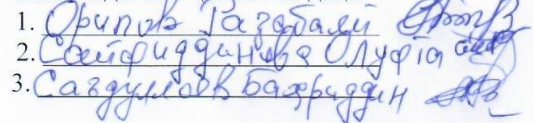 1. Орипов Газабалй
2. Сайфиддинова Олуфта
3. Саъдуллоев Баҳриддин